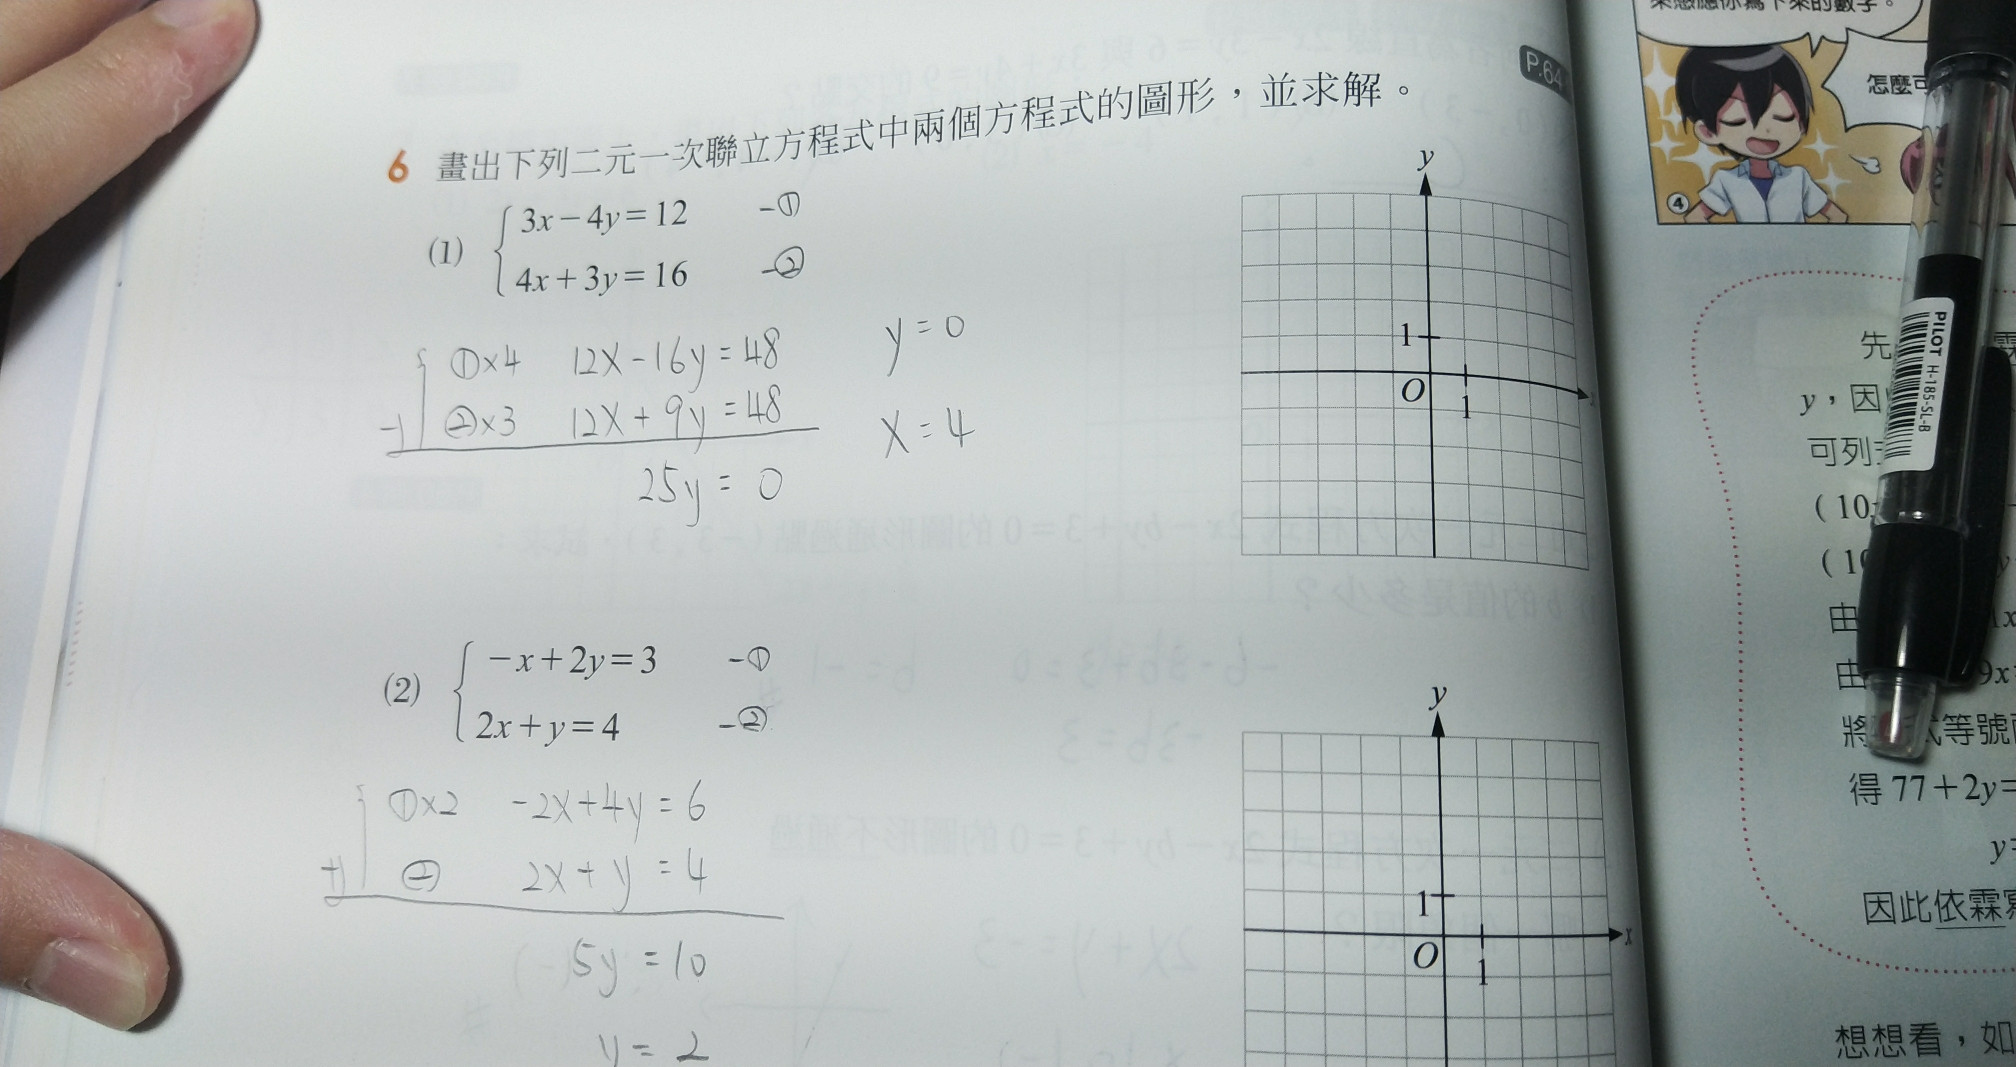 P.64
6 畫出下列二元一次聯立方程式中兩個方程式的圖形，並求解。
(1) { 3x−4y=12 -①
4x+3y=16 -②
①×4 12x-16y=48
-) ②×3 12x+9y=48
25y=0
y=0
x=4
y
1
O 1
(2) { −x+2y=3 -①
2x+y=4 -②
①×2 -2x+4y=6
+) ② 2x+y=4
5y=10
y=2
y
1
O 1 x
來感應你寫下來的數字。
怎麼可
④
PILOT H-185-SL-B
先
y，因
可列
(10
(10
由
由 9x
將 式等號
得 77+2y=
y=
因此依霖
想想看，如